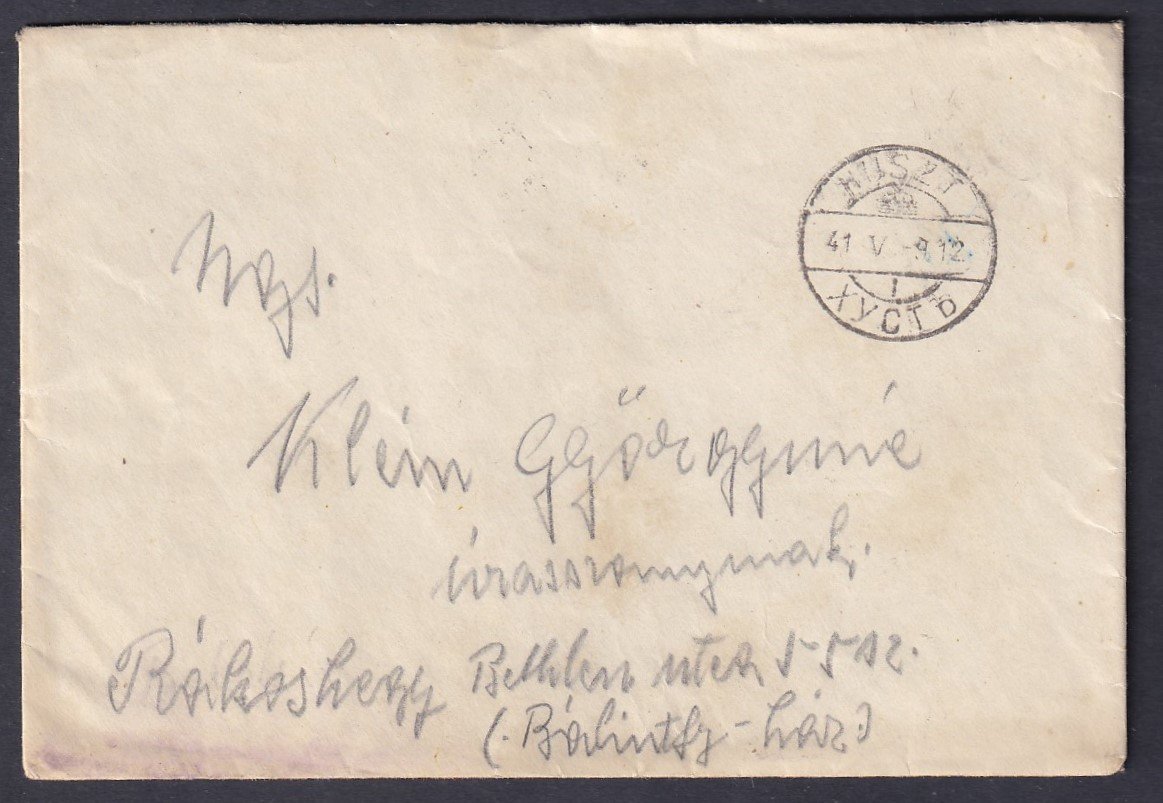 HUSZT
41 V -9.12
1
ХУСТЪ
Ngs.
Klein Györgyné
úrasszonynak.
Rákoshegy Bethlen utca 5-5 sz.
(Bálintfy-ház)